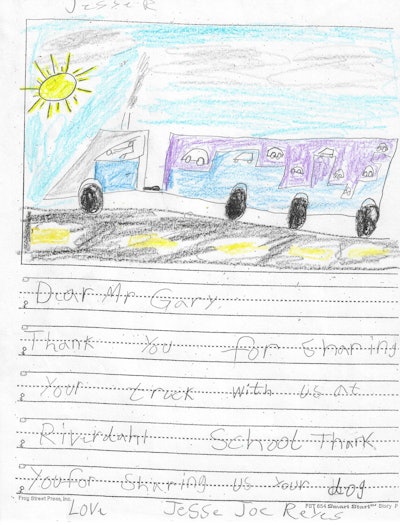 Jesse R
Dear Mr Gary
Thank You for Sharing
Your truck with us at
Riverdahl School Thank
You for Sharing us Your dog
Frog Street Press, Inc.
FST 654 Smart Start™ Story P
Love Jesse Joe Reyes